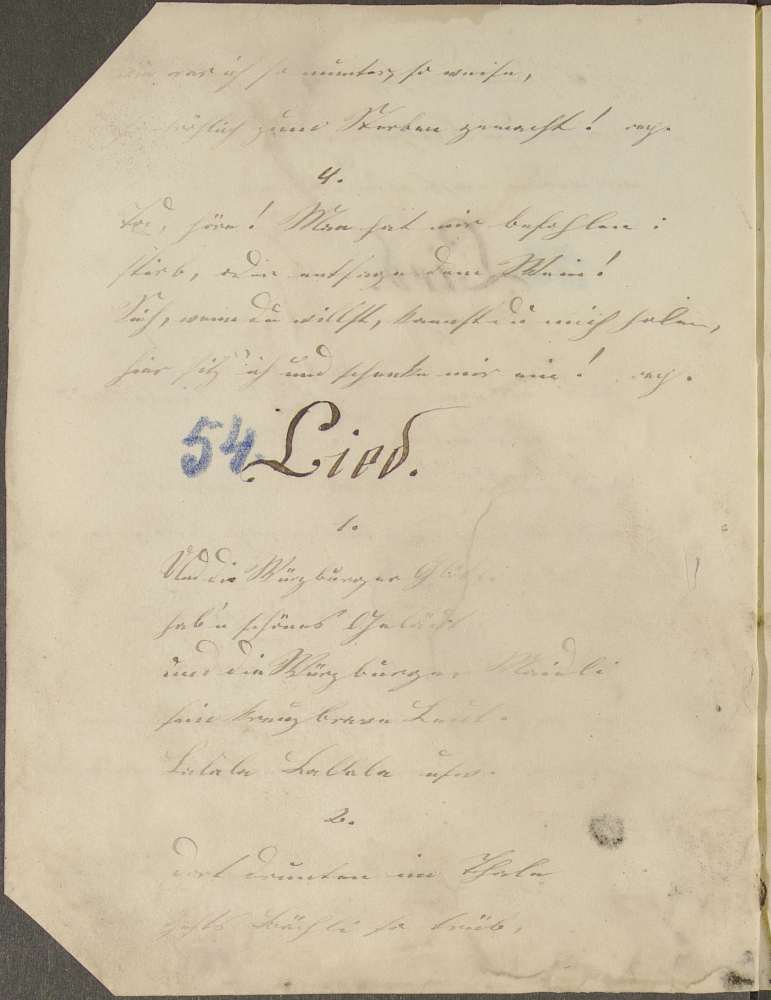 war ich so munter, so weise,
fröhlich zum Sterben gemacht!
4.
Tod, höre! Man hat mir befohlen:
stirb, oder entsage dem Wein!
Sieh, wenn du willst, kannst du mich holen,
hier sitz' ich und schenke mir ein!
54. Lied.
1.
Und die Würzburger
hab'n schönes Geläut
und die Würzburger Maidli
sein kreuzbrave Leut.
Lalala Lalala usw.
2.
dort drunten im Thale
gehts Bächli so trüb,